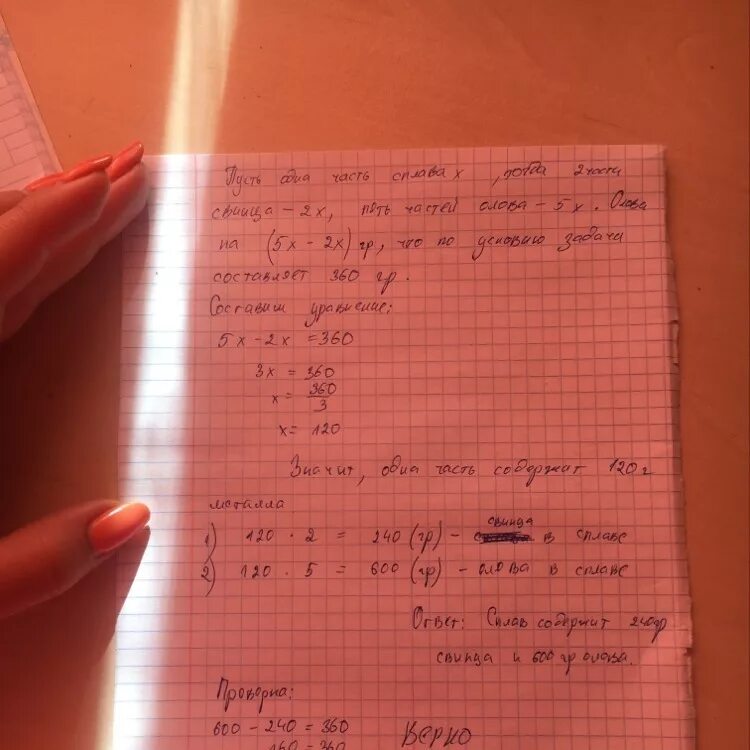 Пусть одна часть сплава x, тогда 2 части
свинца – 2x, пять частей олова – 5x. Олова
на (5x – 2x) гр, что по условию задачи
составляет 360 гр.
Составим уравнение:
5x – 2x = 360
3x = 360
x = 360/3
x = 120
Значит, одна часть содержит 120 г
металла
1) 120 · 2 = 240 (гр) – свинца в сплаве
2) 120 · 5 = 600 (гр) – олова в сплаве
Ответ: Сплав содержит 240гр
свинца и 600 гр олова.
Проверка:
600 – 240 = 360
360 = 360 Верно